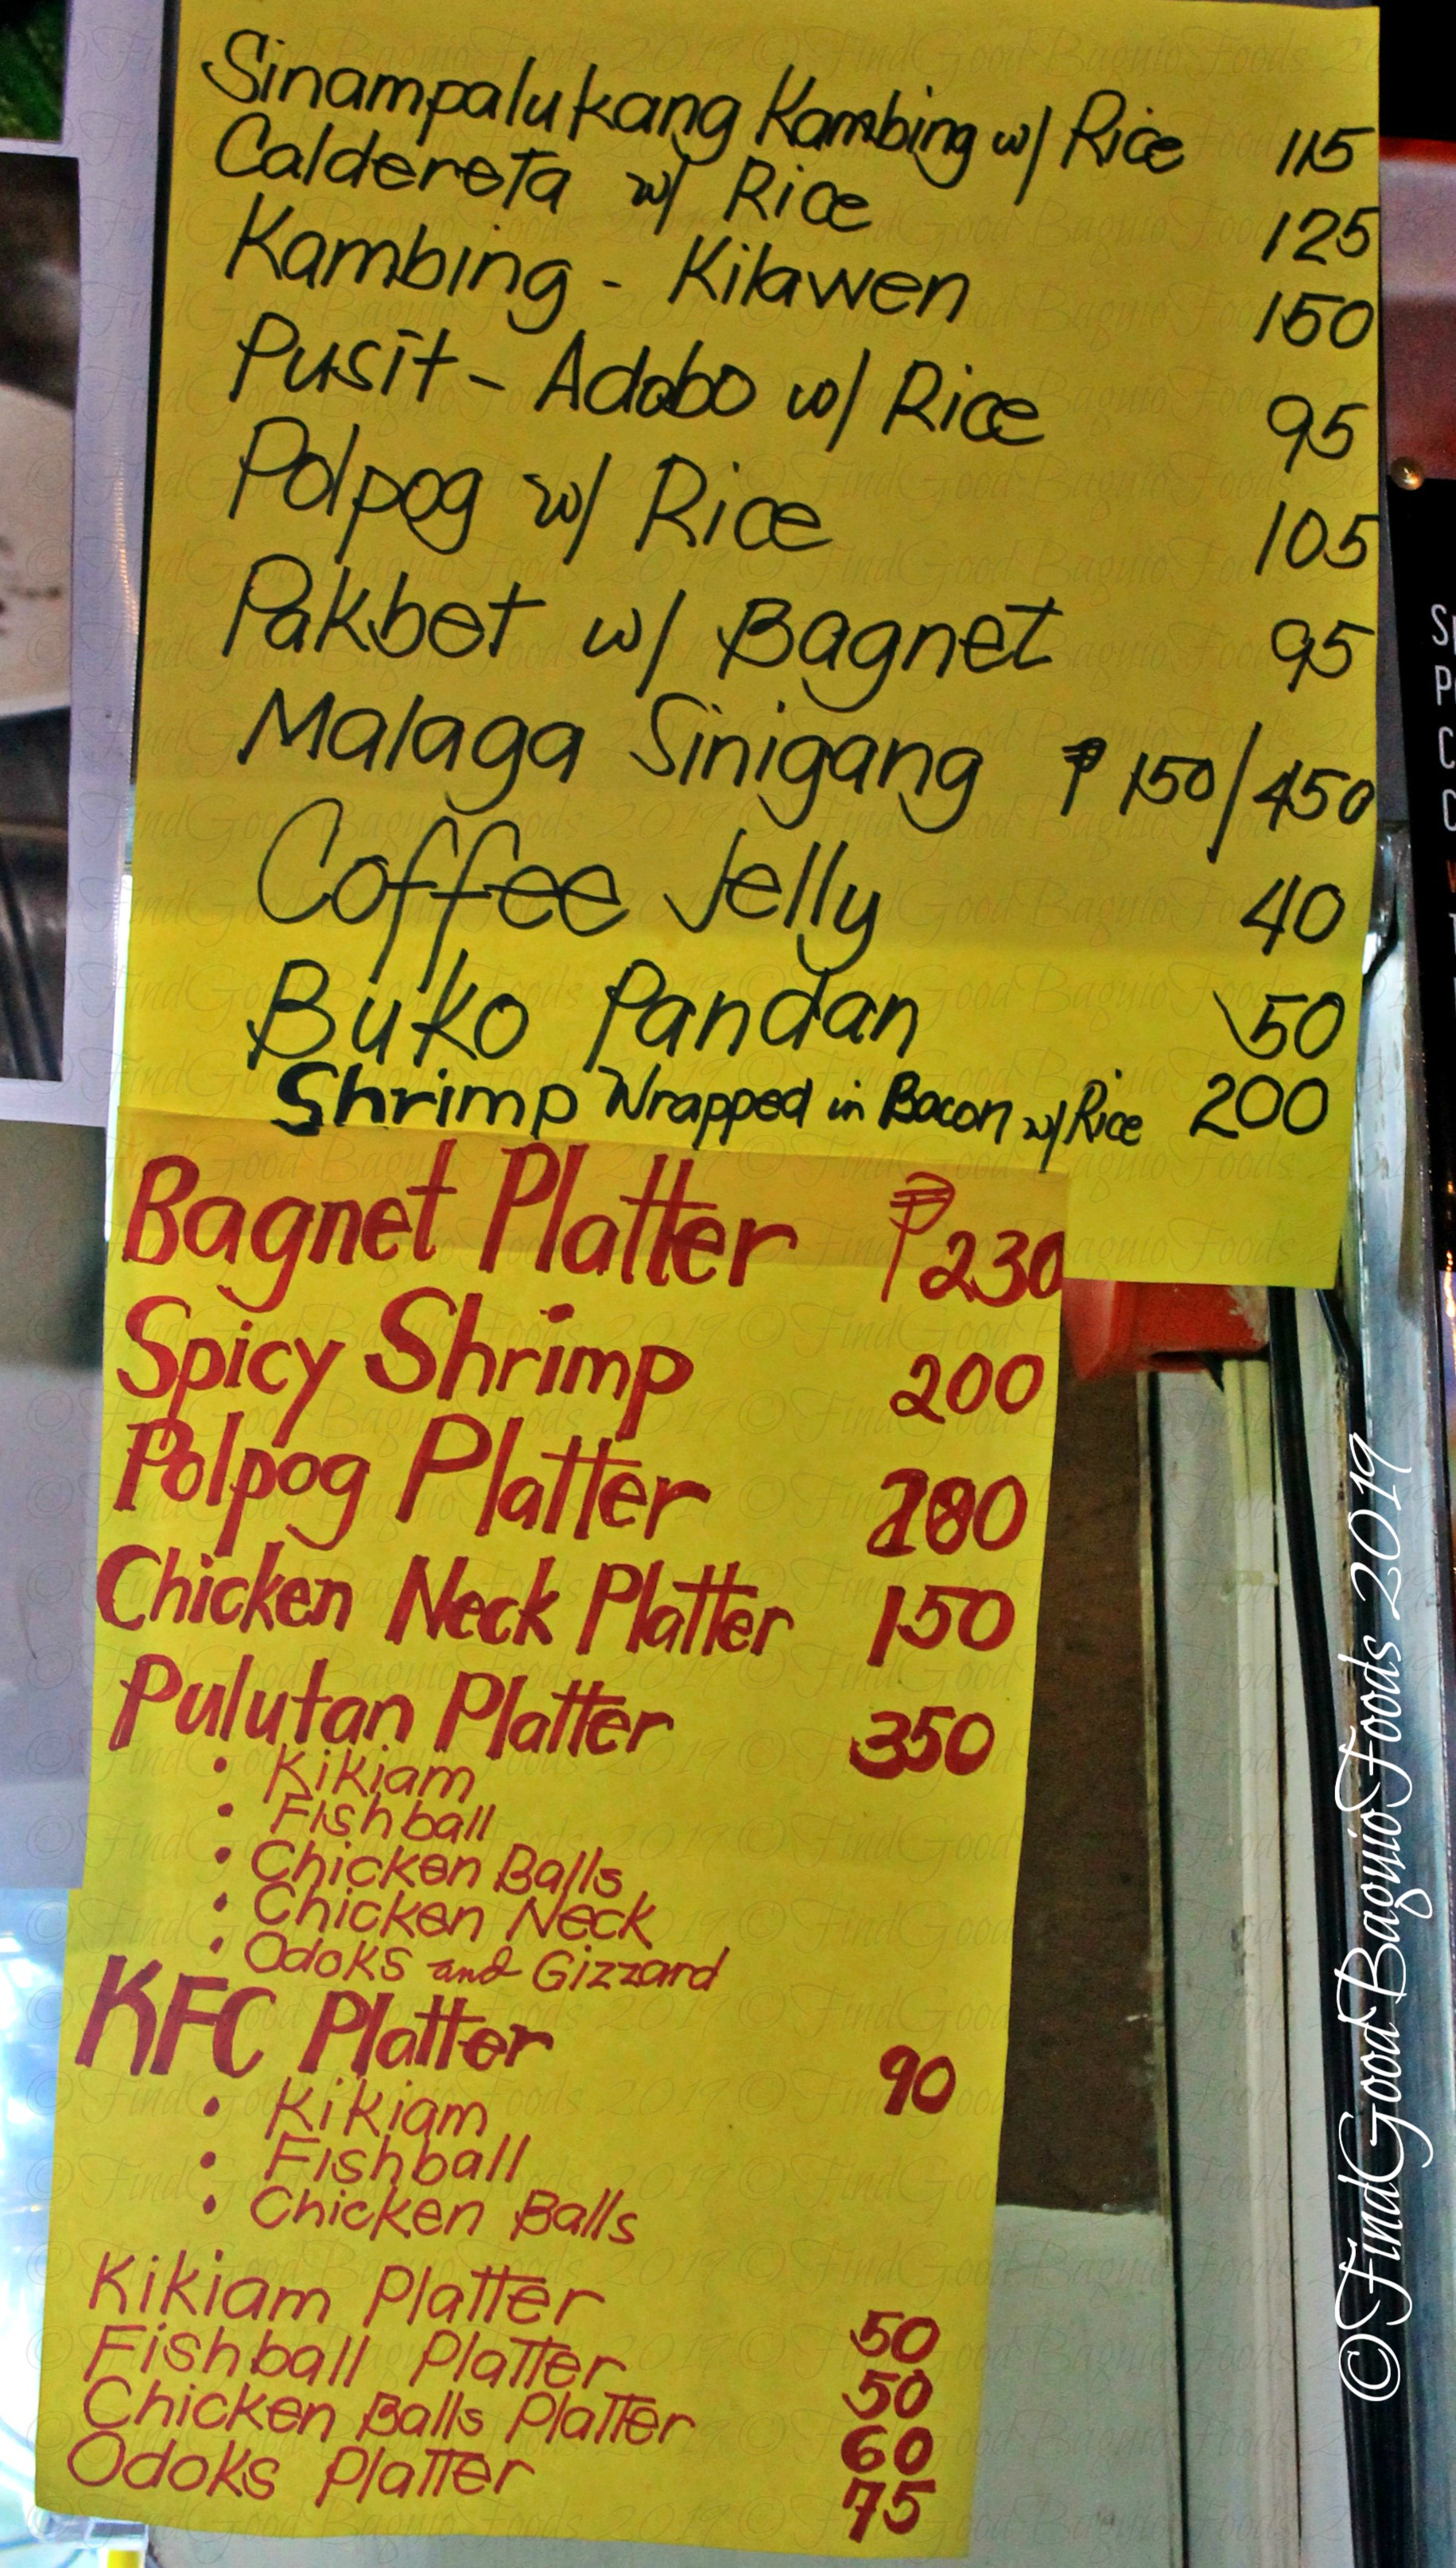 Sinampalukang Kambing w/ Rice 115
Caldereta w/ Rice 125
Kambing - Kilawen 150
Pusit - Adobo w/ Rice 95
Polpog w/ Rice 105
Pakbet w/ Bagnet 95
Malaga Sinigang ₱ 150/450
Coffee Jelly 40
Buko Pandan 50
Shrimp Wrapped in Bacon w/ Rice 200
Bagnet Platter ₱230
Spicy Shrimp 200
Polpog Platter
Chicken Neck Platter 150
Pulutan Platter 350
• Kikiam
• Fishball
• Chicken Balls
• Chicken Neck
• Odoks and Gizzard
KFC Platter 90
• Kikiam
• Fishball
• Chicken Balls
Kikiam Platter 50
Fishball Platter 50
Chicken Balls Platter 60
Odoks Platter 75
©FindGoodBaguioFoods 2019